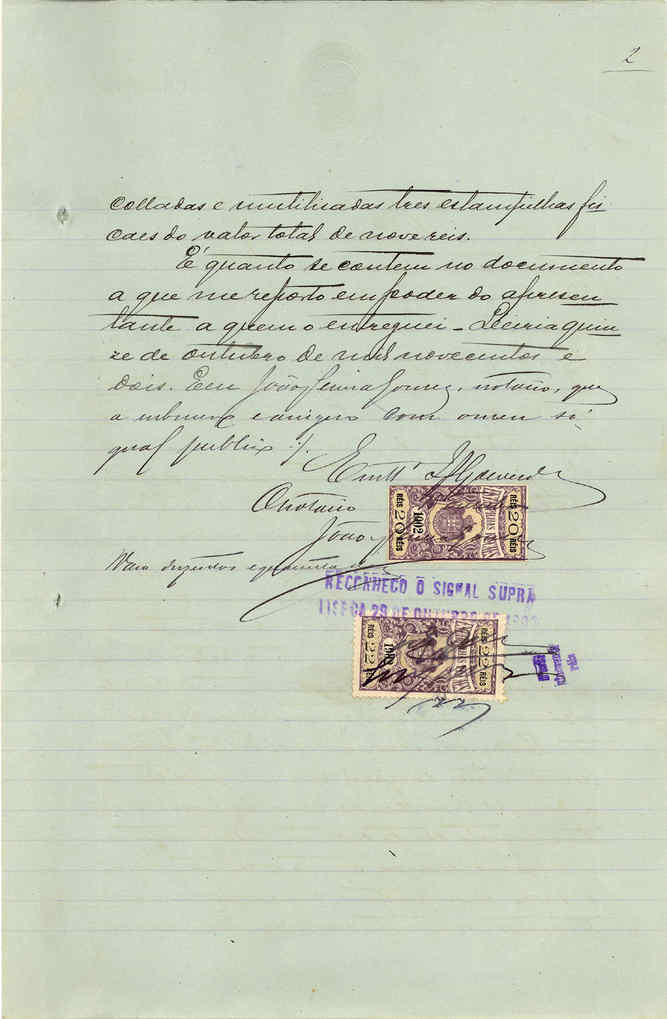 2
colladas e inutilisadas tres estampilhas fis
caes do valor total de nove reis.
É quanto se contem no documento
a que me reporto em poder do apresen
tante a quem o entreguei – Leiria quin
ze de outubro de mil novecentos e
dois. Eu João Gomes, notario, que
a subscrevo e assigno com o meu si
gnal publico
O notario
João
Vale duzentos e quarenta
RÉIS 20 RÉIS
1902
RÉIS 20 RÉIS
RECONHEÇO O SIGNAL SUPRA
LISBOA 29 DE OUTUBRO DE 1902
22
1902
22 RÉIS